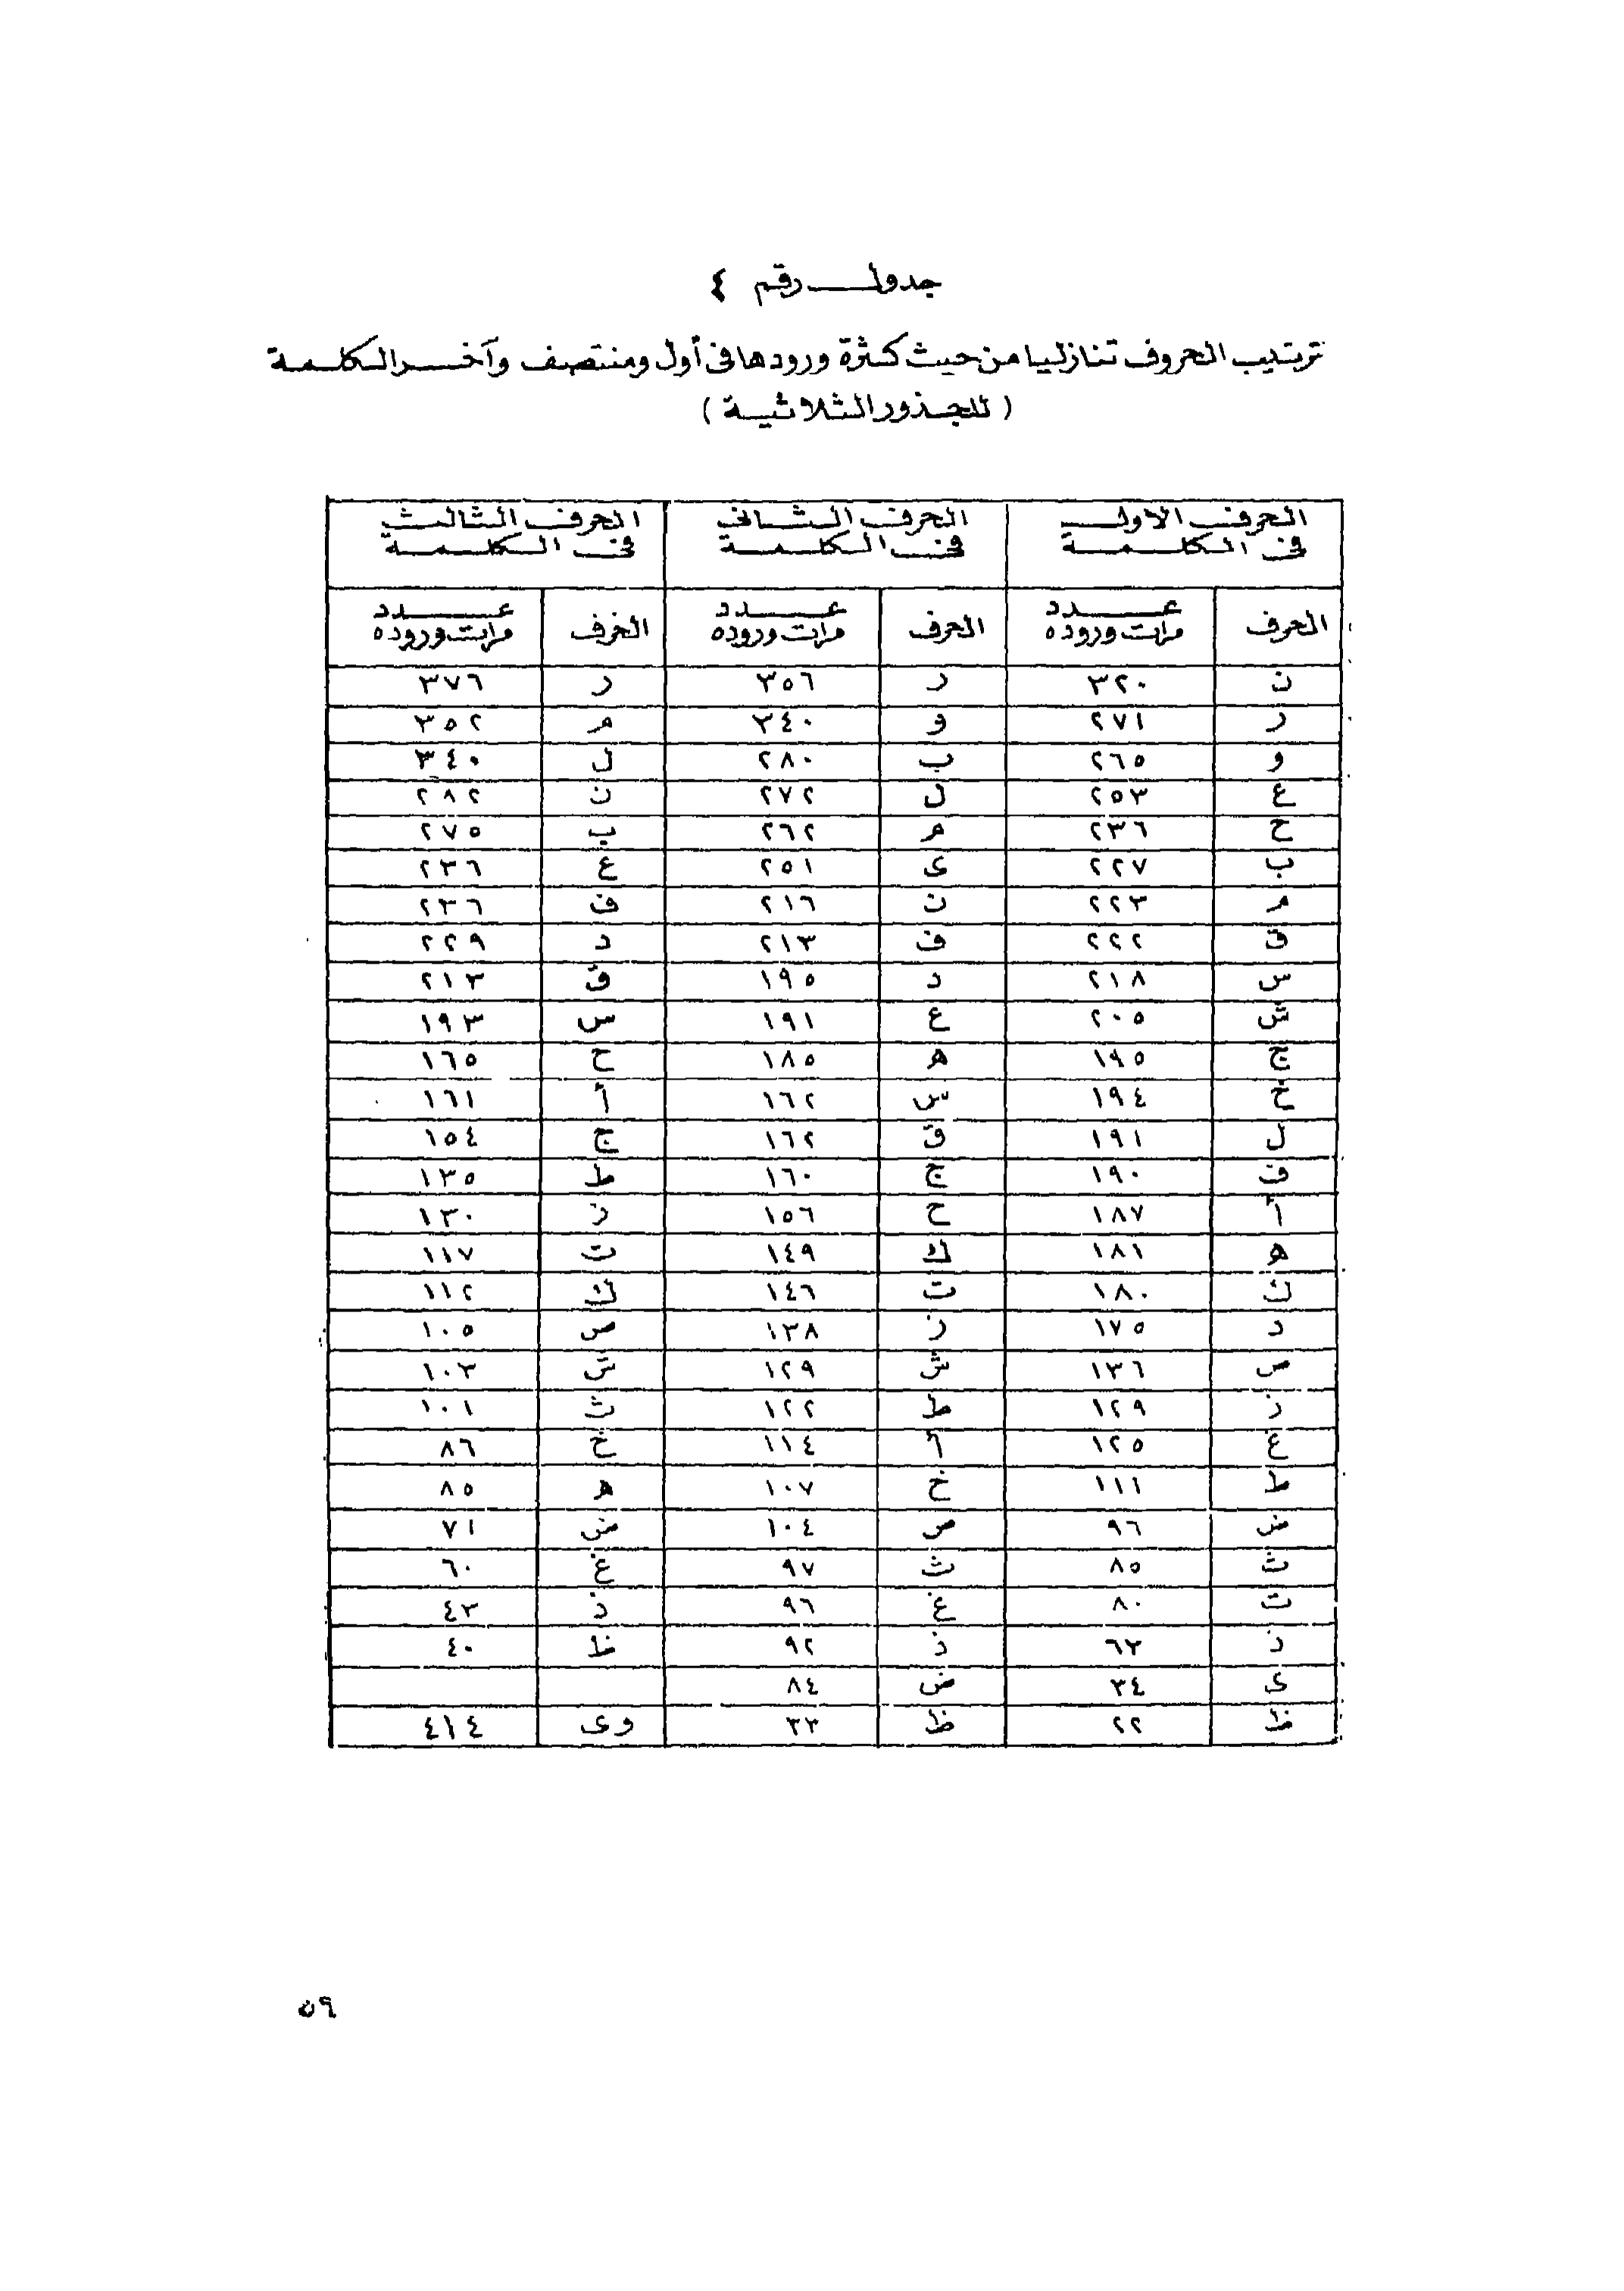 جدول رقم ٤
ترتيب الحروف تنازليا من حيث كثرة ورودها فى أول ومنتصف وآخر الكلمة
( للجذور الثلاثية )
الحرف الأول فى الكلمة الحرف الثانى فى الكلمة الحرف الثالث فى الكلمة
الحرف عدد مرات وروده الحرف عدد مرات وروده الحرف عدد مرات وروده
ن ٣٢٠ ر ٣٥٦ ر ٣٧٦
ر ٢٧١ و ٣٤٠ م ٣٥٢
و ٢٦٥ ب ٢٨٠ ل ٣٤٠
ع ٢٥٣ ل ٢٧٢ ن ٢٨٢
ح ٢٣٦ م ٢٦٢ ب ٢٧٥
ب ٢٢٧ ى ٢٥١ ع ٢٣٦
م ٢٢٣ ن ٢١٦ ف ٢٣٦
ق ٢٢٢ ف ٢١٣ د ٢٢٩
س ٢١٨ د ١٩٥ ق ٢١٣
ش ٢٠٥ ع ١٩١ س ١٩٣
ج ١٩٥ ه ١٨٥ ح ١٦٥
خ ١٩٤ س ١٦٢ أ ١٦١
ل ١٩١ ق ١٦٢ ج ١٥٤
ف ١٩٠ ج ١٦٠ ط ١٣٥
أ ١٨٧ ح ١٥٦ ز ١٣٠
ه ١٨١ ك ١٤٩ ت ١١٧
ك ١٨٠ ت ١٤٦ ك ١١٢
د ١٧٥ ز ١٣٨ ص ١٠٥
ص ١٣٦ ش ١٢٩ ش ١٠٣
ز ١٢٩ ط ١٢٢ ث ١٠١
غ ١٢٥ أ ١١٤ خ ٨٦
ط ١١١ خ ١٠٧ ه ٨٥
ض ٩٦ ص ١٠٤ ض ٧١
ث ٨٥ ث ٩٧ غ ٦٠
ت ٨٠ غ ٩٦ ذ ٤٣
ذ ٦٣ ذ ٩٢ ظ ٤٠
ى ٣٤ ض ٨٤
ظ ٢٢ ظ ٣٣ وى ٤١٤
٥٩